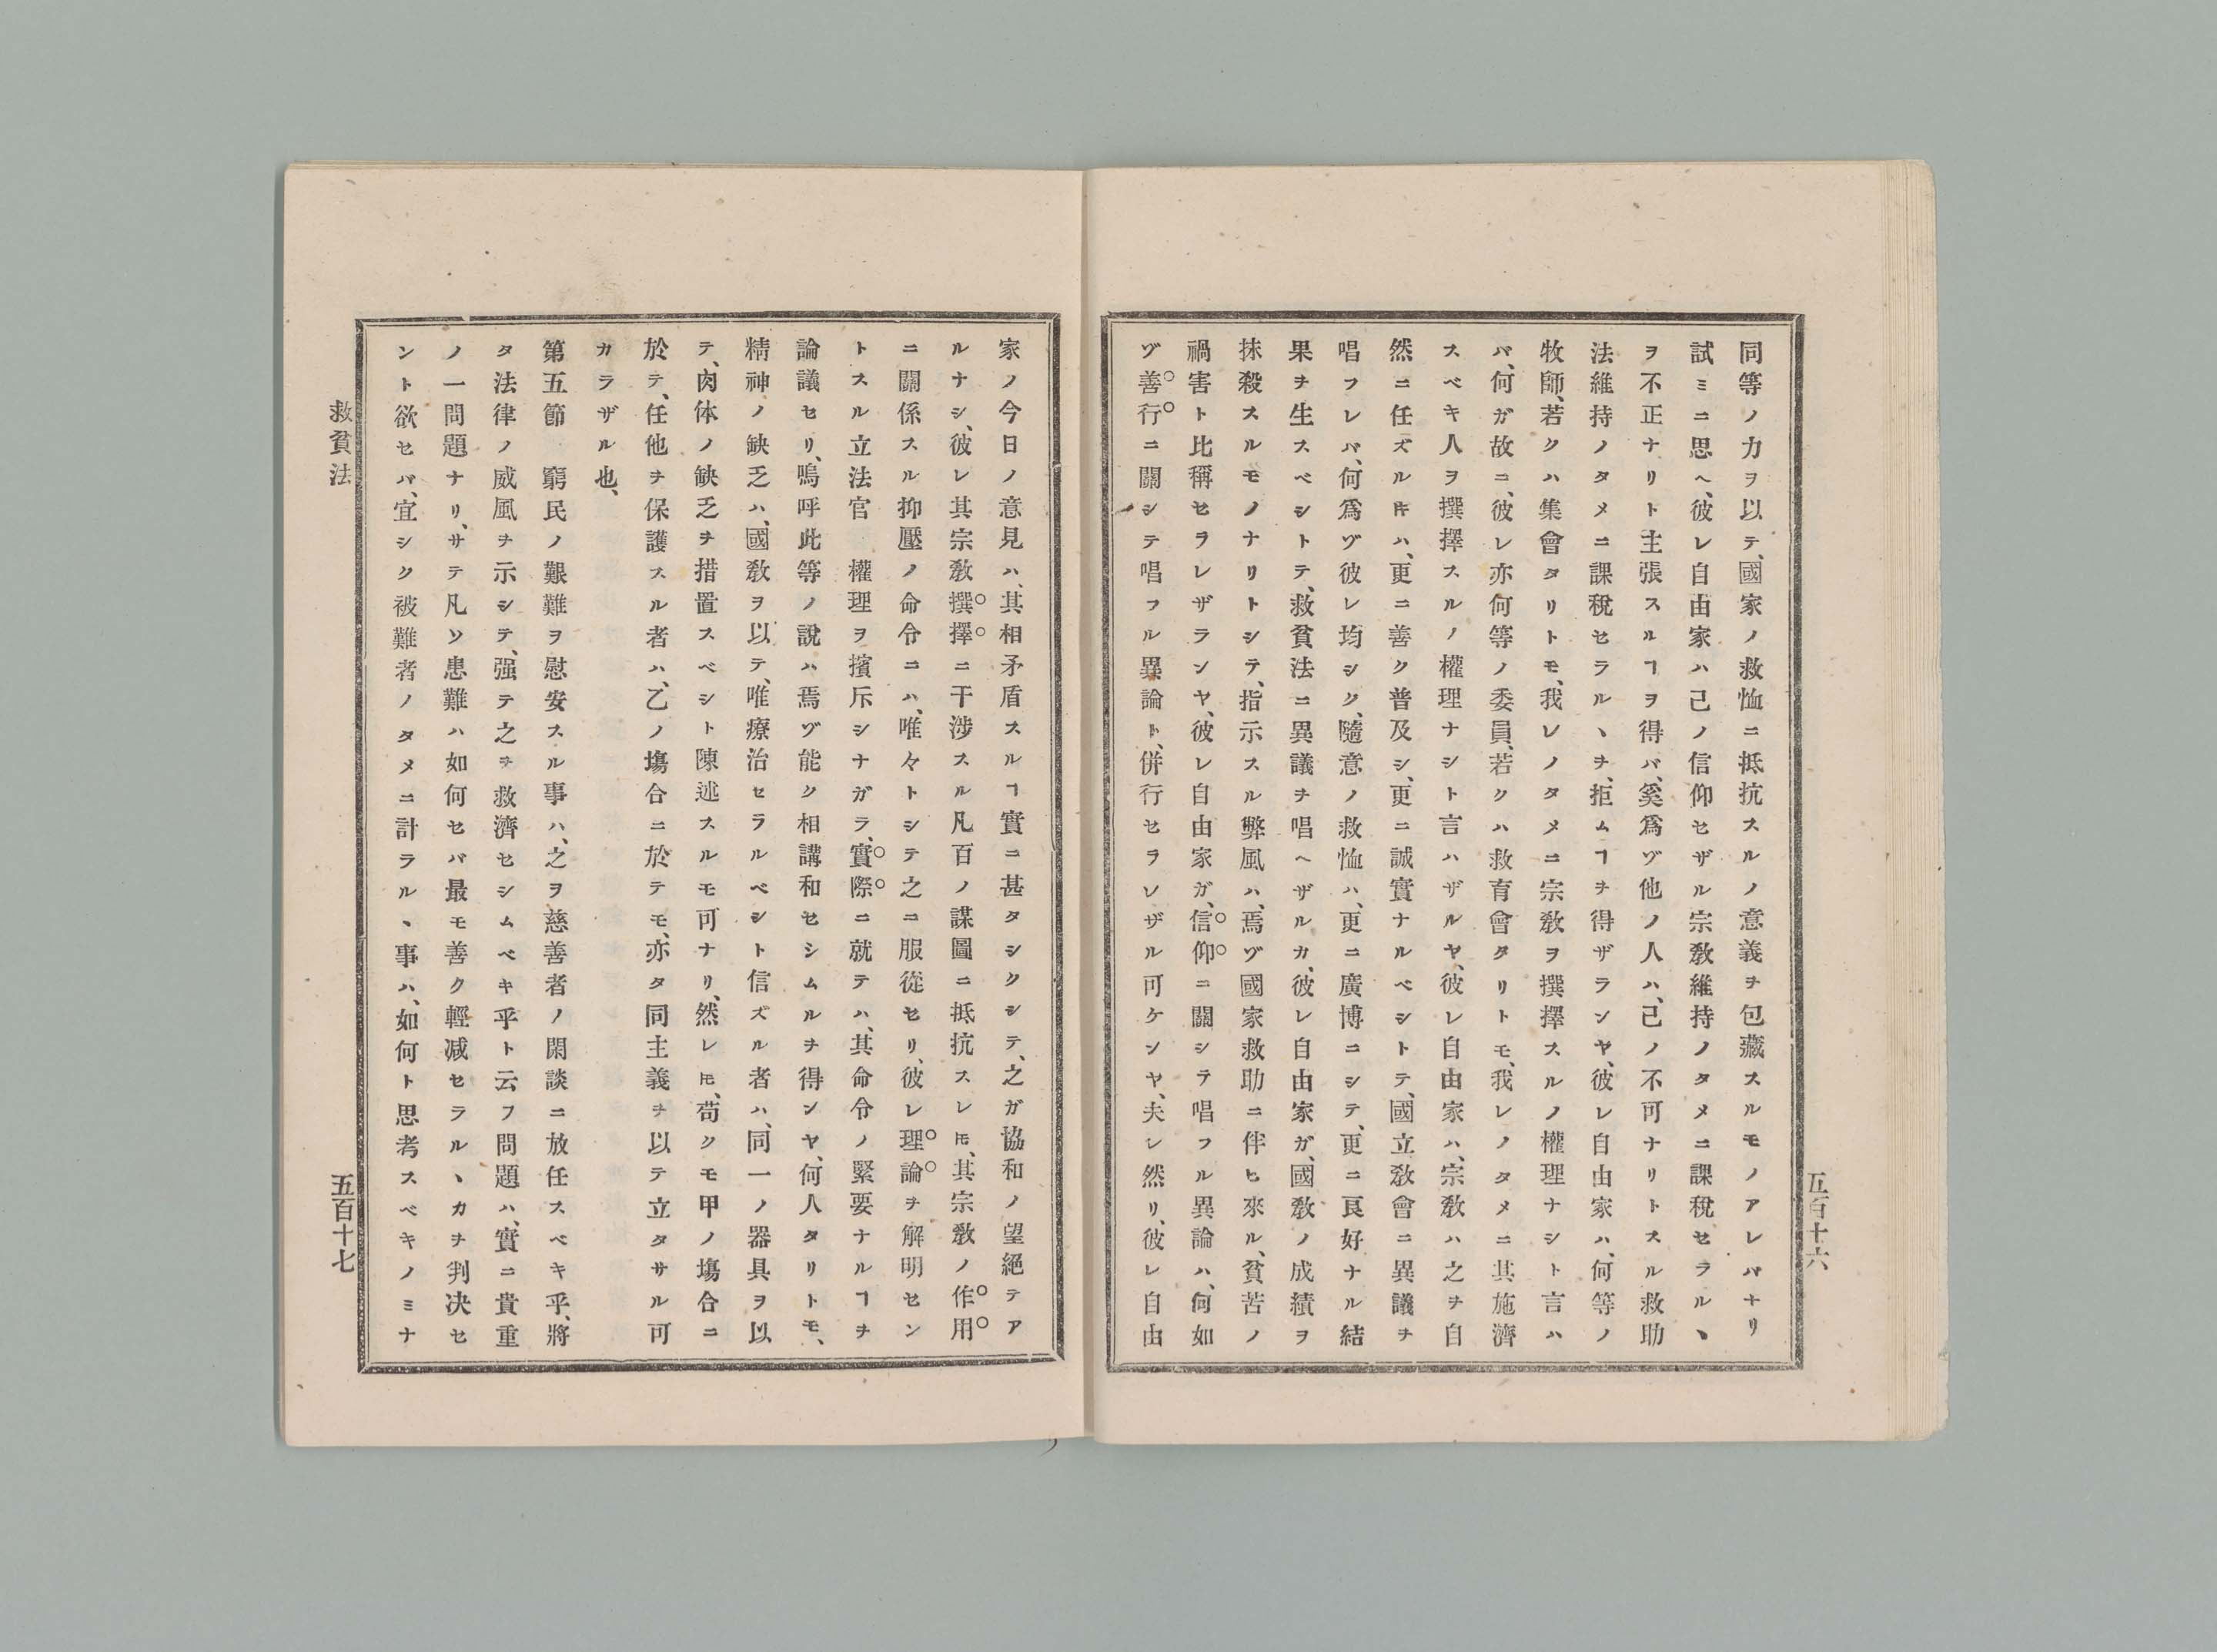 同等ノ力ヲ以テ、國家ノ救恤ニ抵抗スルノ意義ヲ包藏スルモノアレバナリ
試ミニ思ヘ、彼レ自由家ハ己ノ信仰セザル宗敎維持ノタメニ課稅セラルヽ
ヲ不正ナリト主張スルヿヲ得バ、奚爲ゾ他ノ人ハ、己ノ不可ナリトスル救助
法維持ノタメニ課稅セラルヽヲ、拒ムヿヲ得ザランヤ、彼レ自由家ハ、何等ノ
牧師、若クハ集會タリトモ、我レノタメニ宗敎ヲ撰擇スルノ權理ナシト言ハ
バ、何ガ故ニ、彼レ亦何等ノ委員、若クハ救育會タリトモ、我レノタメニ其施濟
スベキ人ヲ撰擇スルノ權理ナシト言ハザルヤ、彼レ自由家ハ、宗敎ハ之ヲ自
然ニ任ズルキハ、更ニ善ク普及シ、更ニ誠實ナルベシトテ、國立敎會ニ異議ヲ
唱フレバ、何爲ゾ彼レ均シク、隨意ノ救恤ハ、更ニ廣博ニシテ、更ニ良好ナル結
果ヲ生スベシトテ、救貧法ニ異議ヲ唱ヘザルカ、彼レ自由家ガ、國敎ノ成績ヲ
抹殺スルモノナリトシテ、指示スル弊風ハ、焉ゾ國家救助ニ伴ヒ來ル、貧苦ノ
禍害ト比稱セラレザランヤ、彼レ自由家ガ、信仰ニ關シテ唱フル異論ハ、何如
ゾ善行ニ關シテ唱フル異論ト、併行セラレザル可ケンヤ、夫レ然リ、彼レ自由
五百十六
家ノ今日ノ意見ハ、其相矛盾スルヿ實ニ甚タシクシテ、之ガ協和ノ望絕テア
ルナシ、彼レ其宗敎撰擇ニ干涉スル凡百ノ謀圖ニ抵抗スレ𪜈、其宗敎ノ作用
ニ關係スル抑壓ノ命令ニハ、唯々トシテ之ニ服從セリ、彼レ理論ヲ解明セン
トスル立法官 權理ヲ擯斥シナガラ、實際ニ就テハ、其命令ノ緊要ナルヿヲ
論議セリ、嗚呼此等ノ說ハ焉ゾ能ク相講和セシムルヲ得ンヤ、何人タリトモ、
精神ノ缺乏ハ、國敎ヲ以テ、唯療治セラルベシト信ズル者ハ、同一ノ器具ヲ以
テ、肉体ノ缺乏ヲ措置スベシト陳述スルモ可ナリ、然レ𪜈、苟クモ甲ノ塲合ニ
於テ、任他ヲ保護スル者ハ、乙ノ塲合ニ於テモ、亦タ同主義ヲ以テ立タサル可
カラザル也、
第五節 窮民ノ艱難ヲ慰安スル事ハ、之ヲ慈善者ノ閑談ニ放任スベキ乎、將
タ法律ノ威風ヲ示シテ、强テ之ヲ救濟セシムベキ乎ト云フ問題ハ、實ニ貴重
ノ一問題ナリ、サテ凡ソ患難ハ如何セバ最モ善ク輕减セラルヽカヲ判决セ
ント欲セバ、宜シク被難者ノタメニ計ラルヽ事ハ、如何ト思考スベキノミナ
救貧法
五百十七